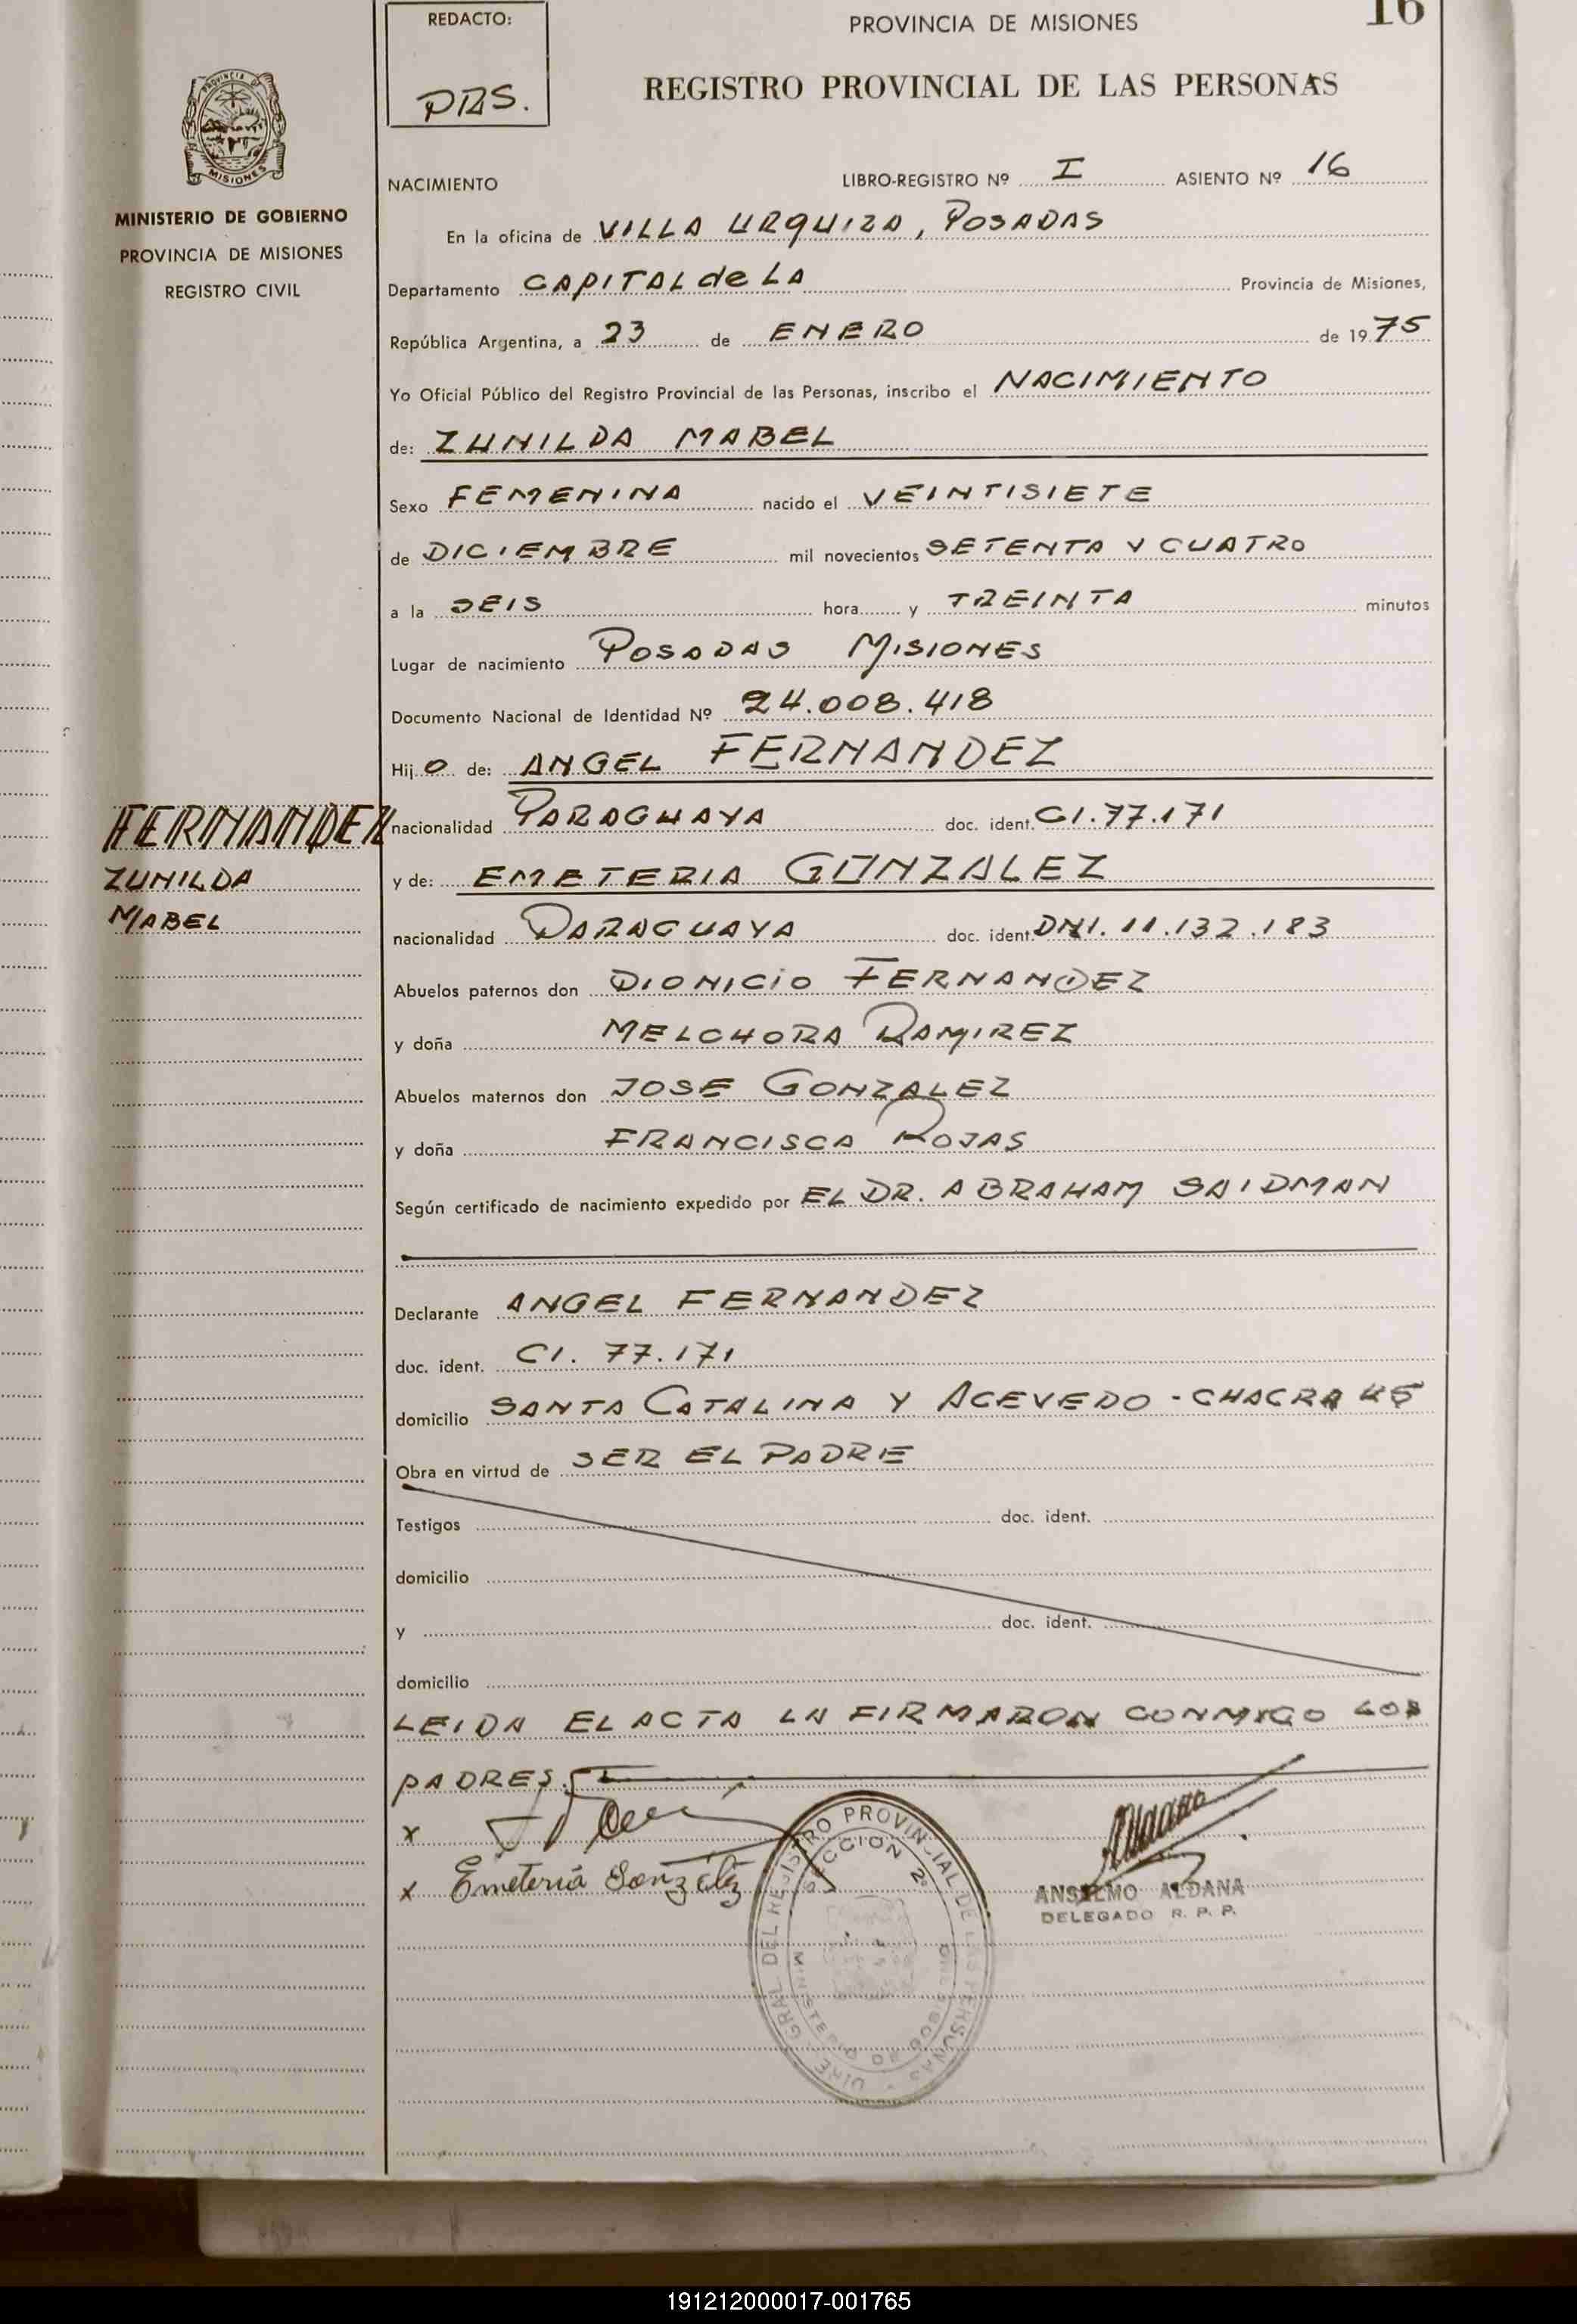 REDACTO:
PRS.
PROVINCIA DE MISIONES
16
REGISTRO PROVINCIAL DE LAS PERSONAS
PROVINCIA DE
MISIONES
MINISTERIO DE GOBIERNO
PROVINCIA DE MISIONES
REGISTRO CIVIL
NACIMIENTO LIBRO-REGISTRO Nº I ASIENTO Nº 16
En la oficina de VILLA URQUIZA, POSADAS
Departamento CAPITAL de LA Provincia de Misiones,
República Argentina, a 23 de ENERO de 1975
Yo Oficial Público del Registro Provincial de las Personas, inscribo el NACIMIENTO
de: ZUNILDA MABEL
Sexo FEMENINA nacido el VEINTISIETE
de DICIEMBRE mil novecientos SETENTA Y CUATRO
a la SEIS hora y TREINTA minutos
Lugar de nacimiento POSADAS MISIONES
Documento Nacional de Identidad Nº 24.008.418
Hijo de: ANGEL FERNANDEZ
FERNANDEZ
ZUNILDA
MABEL
nacionalidad PARAGUAYA doc. ident. CI. 77.171
y de: EMETERIA GONZALEZ
nacionalidad PARAGUAYA doc. ident. DNI. 11.132.183
Abuelos paternos don DIONICIO FERNANDEZ
y doña MELCHORA RAMIREZ
Abuelos maternos don JOSE GONZALEZ
y doña FRANCISCA ROJAS
Según certificado de nacimiento expedido por EL DR. ABRAHAM SAIDMAN
Declarante ANGEL FERNANDEZ
doc. ident. CI. 77.171
domicilio SANTA CATALINA Y ACEVEDO - CHACRA 45
Obra en virtud de SER EL PADRE
Testigos doc. ident.
domicilio
y doc. ident.
domicilio
LEIDA EL ACTA LA FIRMARON CONMIGO LOS
PADRES.
x
x Emeteria Gonzalez
DIRE. GRAL. DEL REGISTRO PROVINCIAL DE LAS PERSONAS
SECCION 2º
MINISTERIO DE GOBIERNO
ANSELMO ALDANA
DELEGADO R. P. P.
191212000017-001765